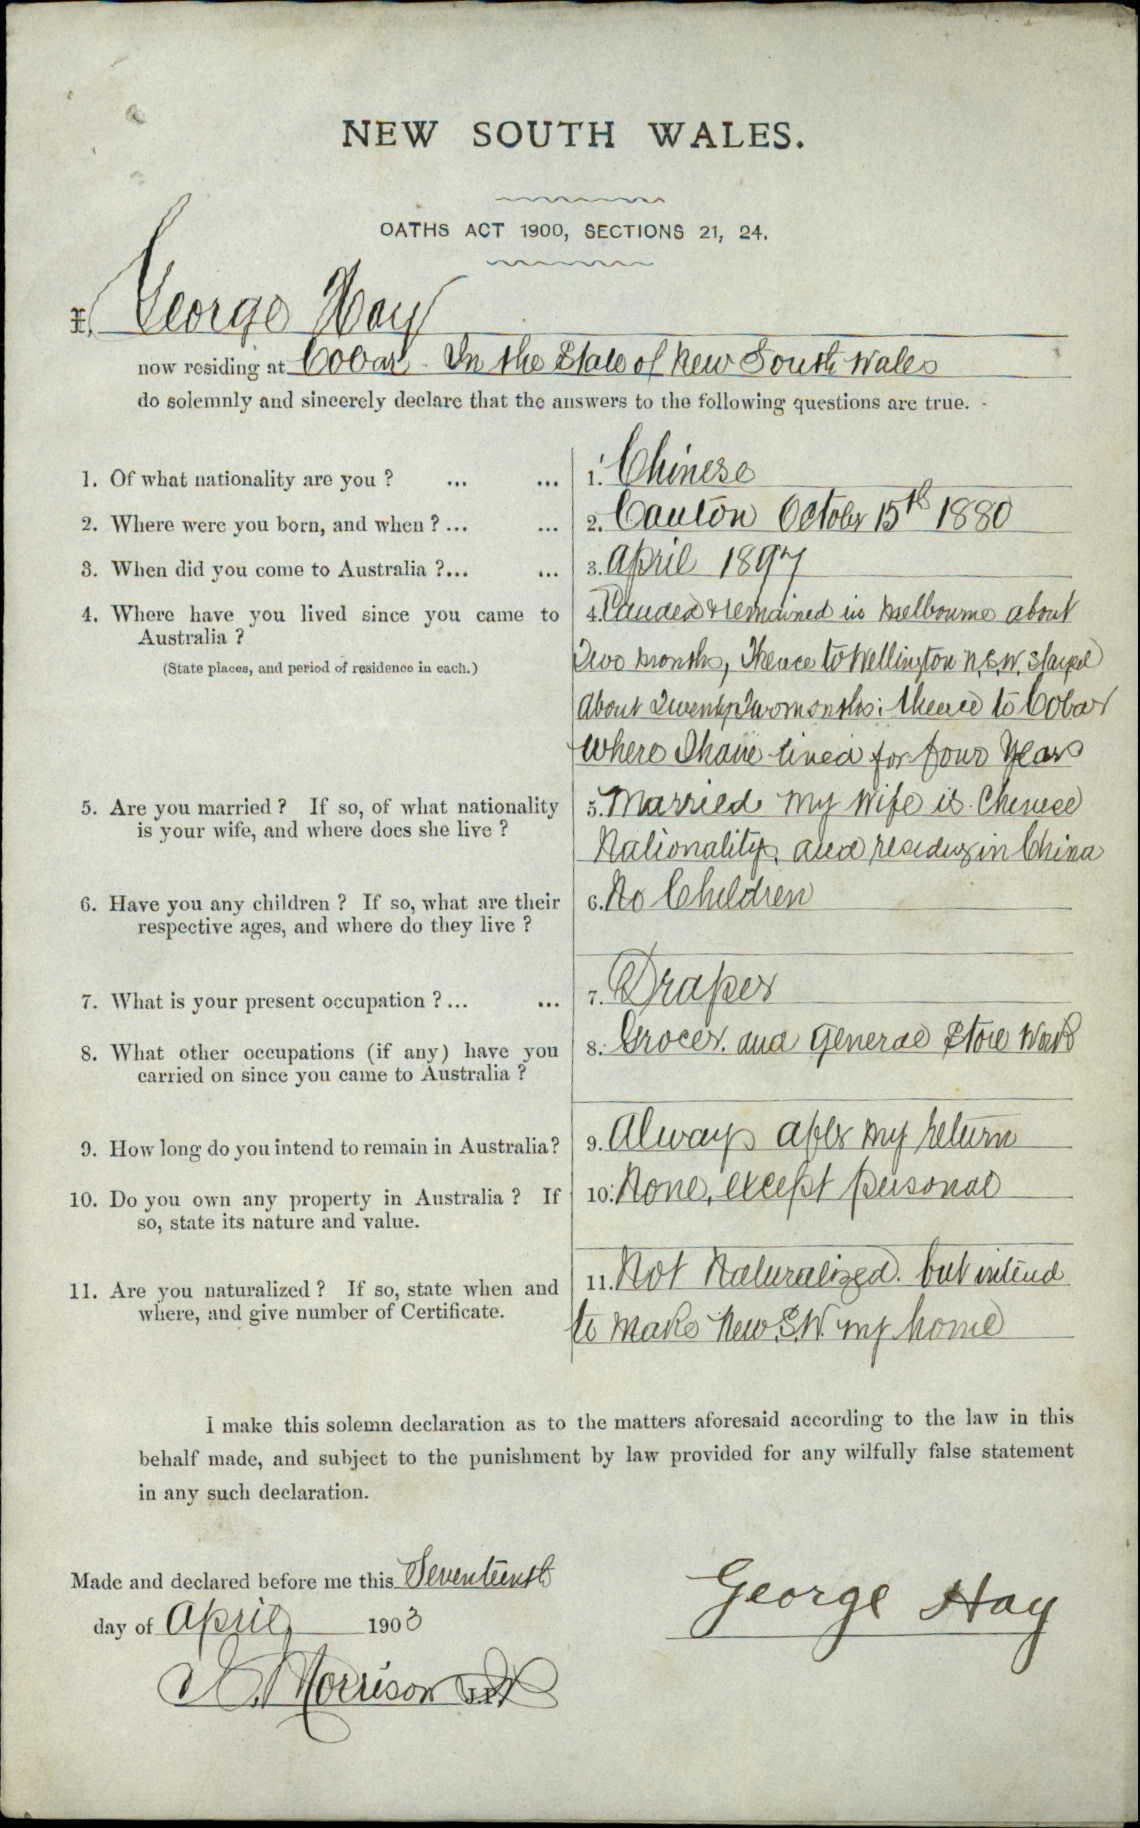 NEW SOUTH WALES.
OATHS ACT 1900, SECTIONS 21, 24.
I, George Hay
now residing at Cobar - In the State of New South Wales
do solemnly and sincerely declare that the answers to the following questions are true. -
1. Of what nationality are you ? ... ... 1. Chinese
2. Where were you born, and when ? ... ... 2. Canton October 15th 1880
3. When did you come to Australia ?... ... 3. April 1897
4. Where have you lived since you came to 4. Landed & remained in Melbourne about
Australia ?
(State places, and period of residence in each.) Two months, Thence to Wellington N.S.W. Stayed
About Twenty Two months: thence to Cobar
where I have lived for four Years
5. Are you married ? If so, of what nationality 5. Married my wife is Chinese
is your wife, and where does she live ? Nationality, and residing in China
6. Have you any children ? If so, what are their 6. No Children
respective ages, and where do they live ?
7. What is your present occupation ? ... ... 7. Draper
8. What other occupations (if any) have you 8. Grocer. and General Store Work
carried on since you came to Australia ?
9. How long do you intend to remain in Australia? 9. Always after my return
10. Do you own any property in Australia ? If 10. None, except personal
so, state its nature and value.
11. Are you naturalized ? If so, state when and 11. Not Naturalized. but intend
where, and give number of Certificate. to make New S.W. my home
I make this solemn declaration as to the matters aforesaid according to the law in this
behalf made, and subject to the punishment by law provided for any wilfully false statement
in any such declaration.
Made and declared before me this Seventeenth
day of April 1903
George Hay
Morrison J.P.